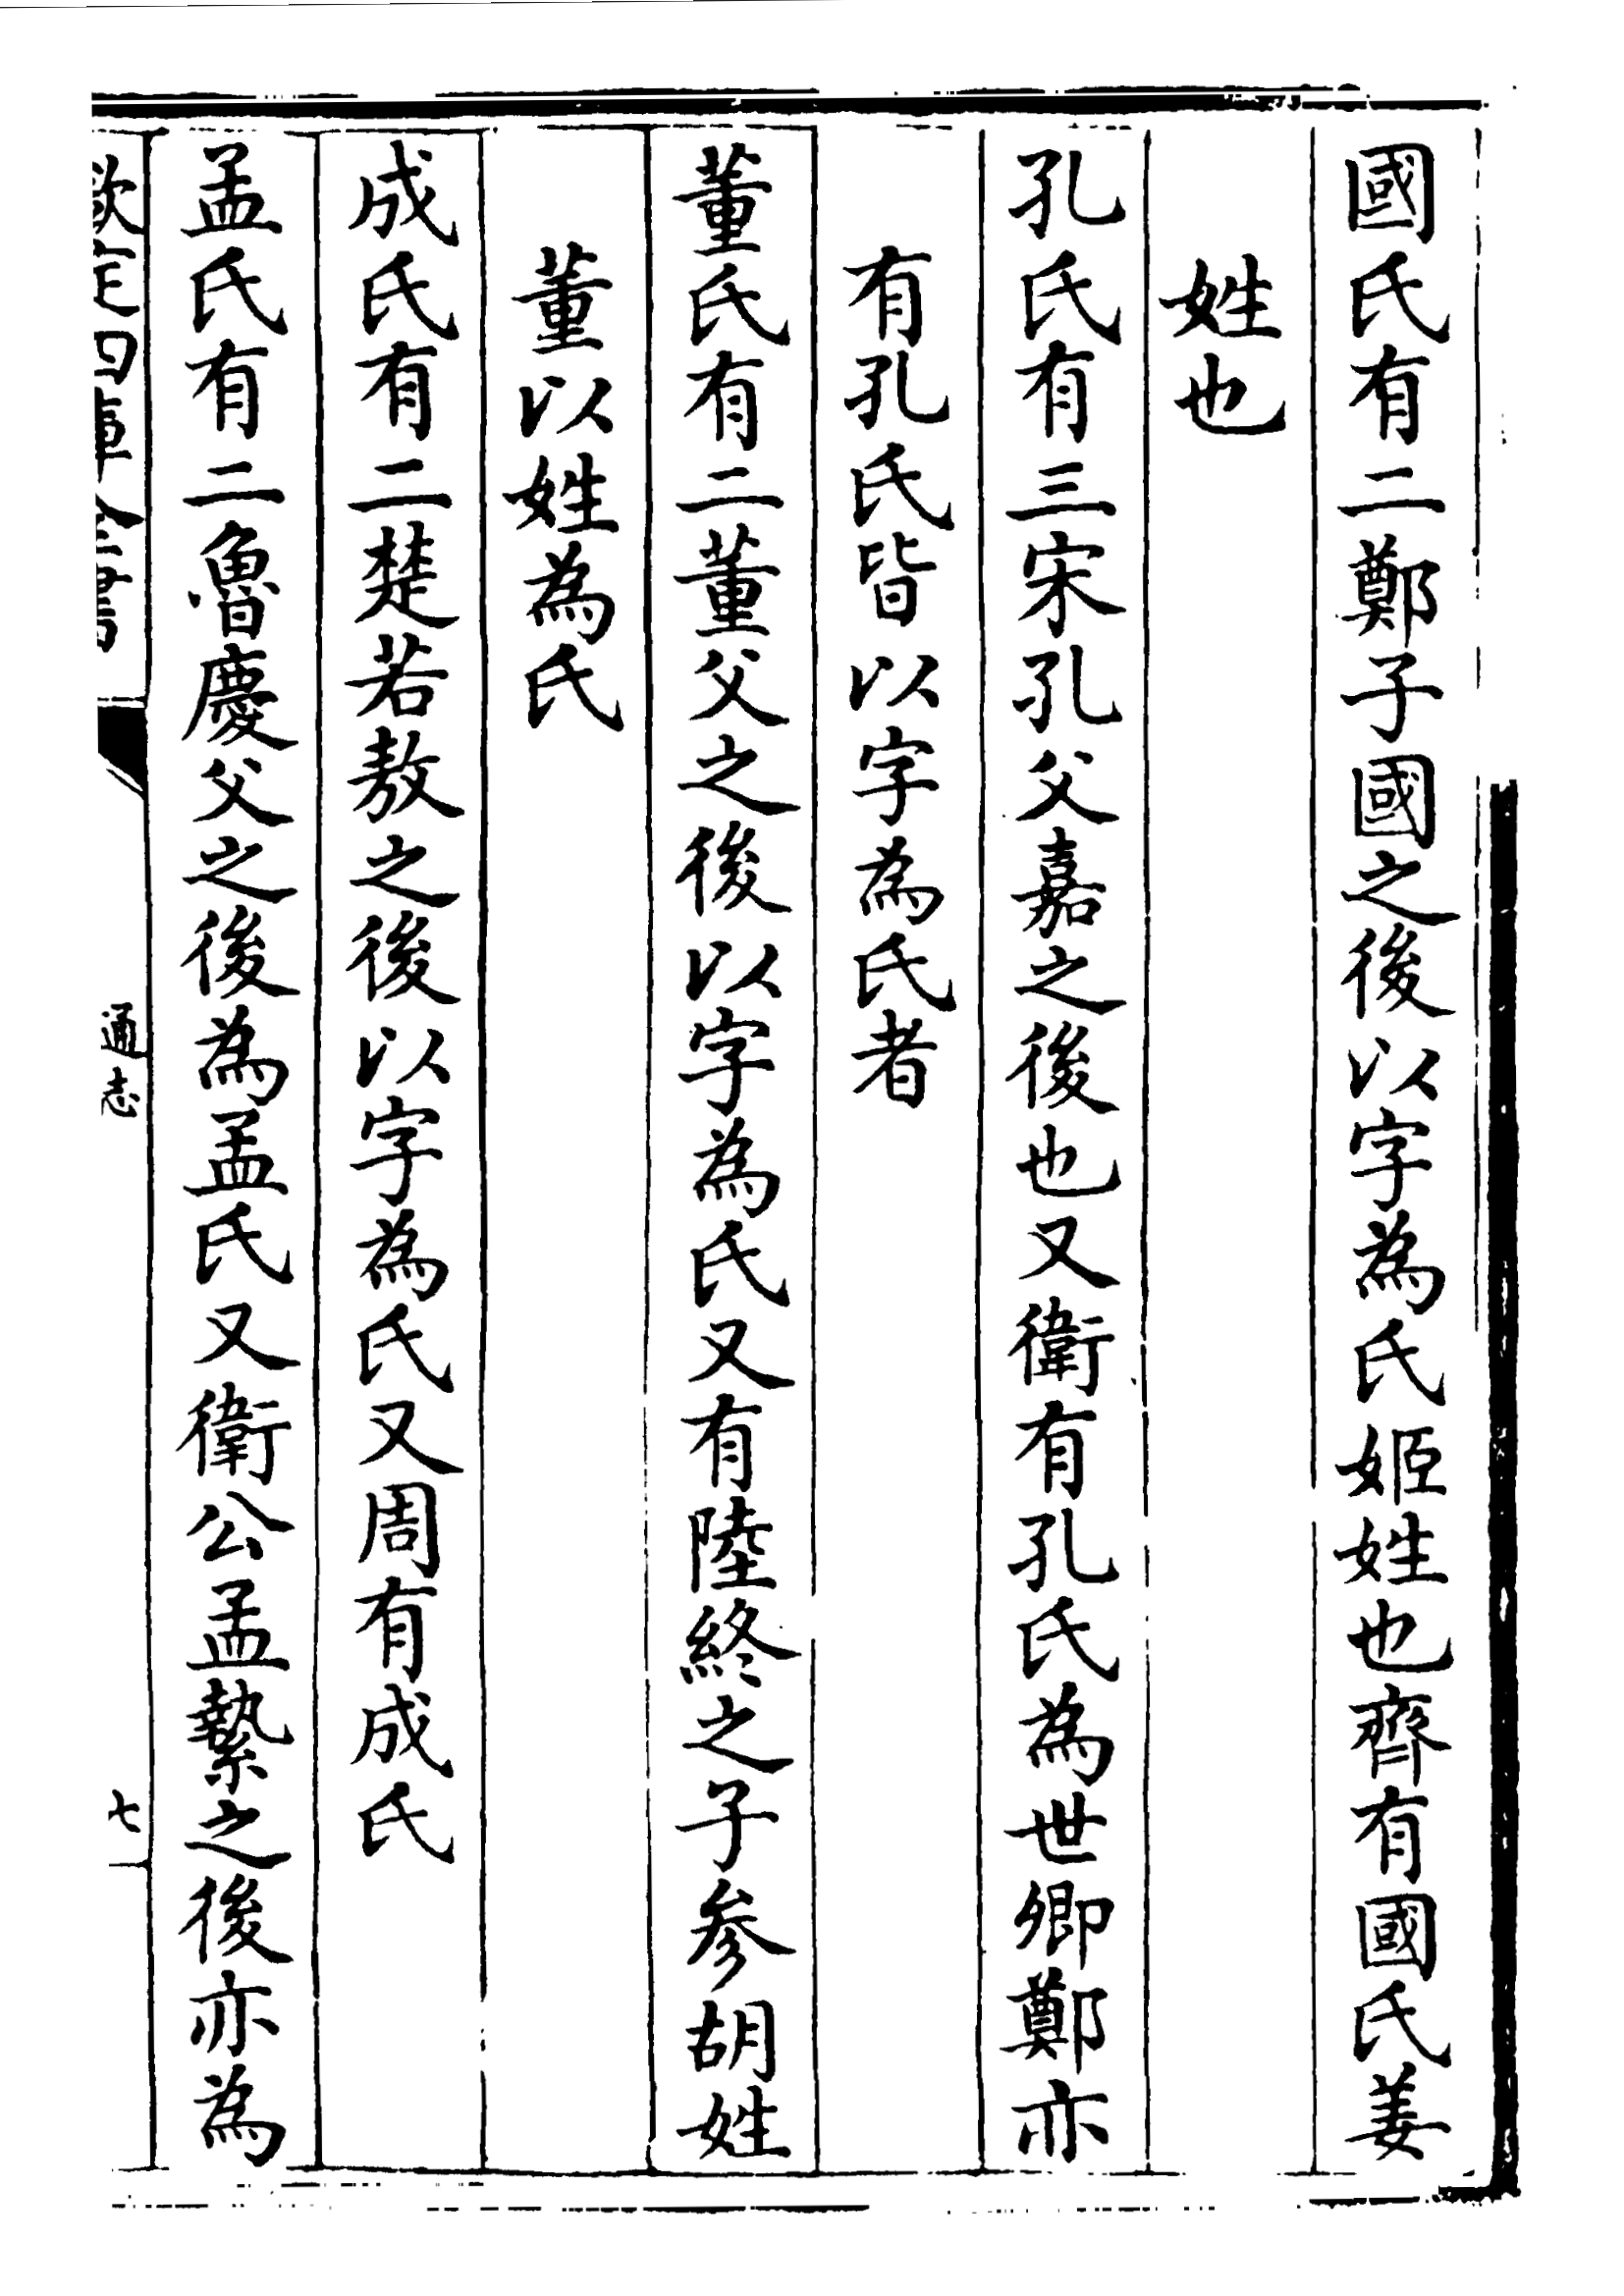 國氏有二鄭子國之後以字為氏姬姓也齊有國氏姜
姓也
孔氏有三宋孔父嘉之後也又衛有孔氏為世卿鄭亦
有孔氏皆以字為氏者
董氏有二董父之後以字為氏又有陸終之子參胡姓
董以姓為氏
成氏有二楚若敖之後以字為氏又周有成氏
孟氏有二魯慶父之後為孟氏又衛公孟縶之後亦為
欽定四庫全書
通志
七